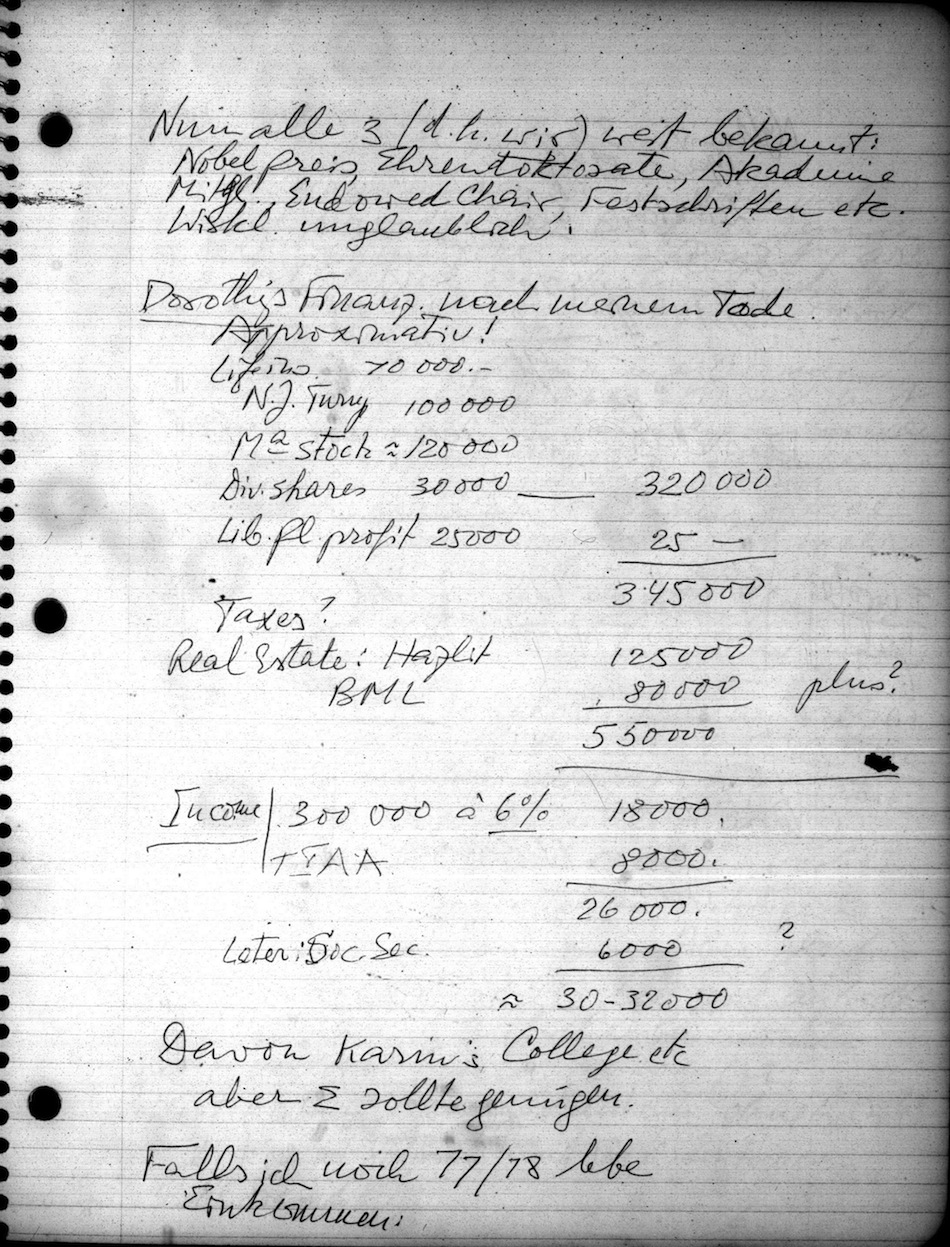 Nun alle 3 (d.h. wir) weit bekannt:
Nobelpreis, Ehrendoktorate, Akademie
Mitgl., Endowed Chair, Festschriften etc.
Wirkl. unglaublich.
Dorothy's Finanz. nach meinem Tode.
Approximativ!
Life ins. 70 000.-
N.J. 100 000
Ma stock ≈ 120 000
Div. shares 30000 ___ 320 000
Lib. pl. profit 25000 25 —
345 000
Taxes?
Real Estate: Hazlit 125000
BML 80000 plus?
550000
Income | 300 000 à 6% 18000.
TIAA 8000.
26 000.
Later: Soc. Sec. 6000 ?
≈ 30-32000
Davon Karin's College etc
aber Σ sollte genügen.
Falls ich noch 77/78 lebe
Einkommen: